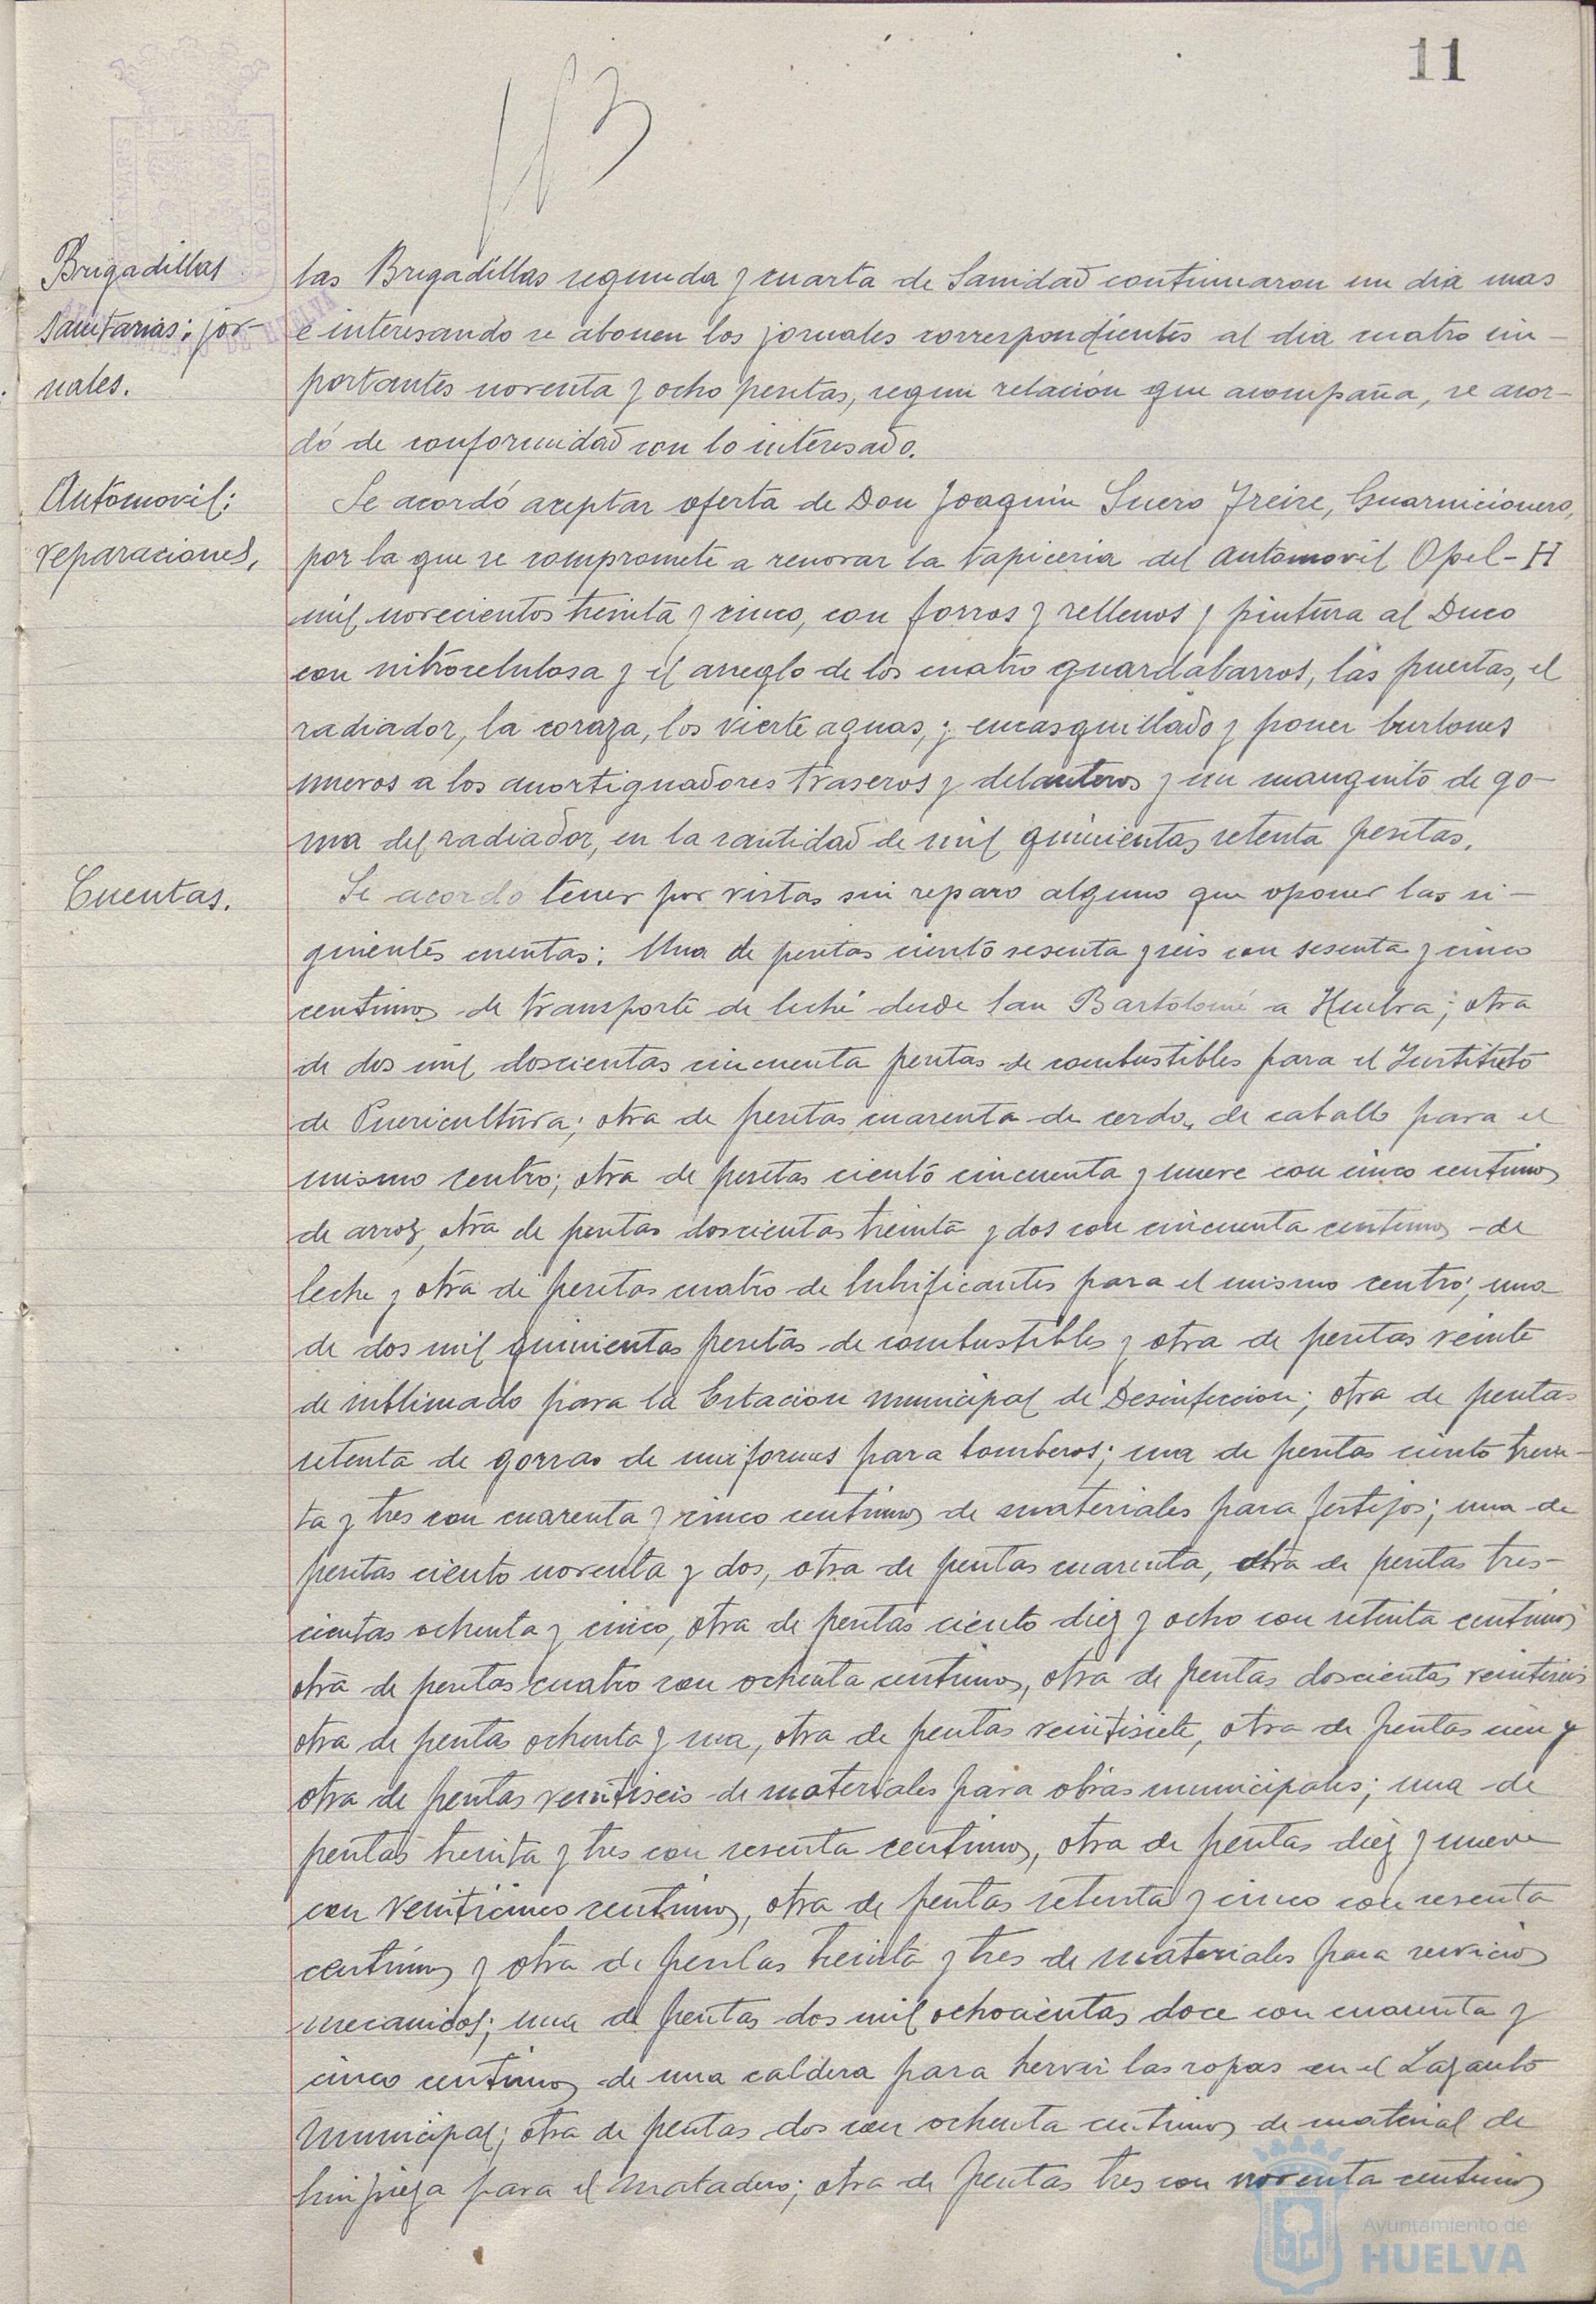 11
Brigadillas
sanitarias: jor-
nales.
las Brigadillas segunda y cuarta de Sanidad continuaron un dia mas
e interesando se abonen los jornales correspondientes al dia cuatro im-
portantes noventa y ocho pesetas, segun relación que acompaña, se acor-
dó de conformidad con lo interesado.
Automovil:
reparaciones,
Se acordó aceptar oferta de Don Joaquin Suero Freire, Guarnicionero,
por la que se compromete a renovar la tapiceria del automovil Opel-H
mil novecientos treinta y cinco, con forros y rellenos y pintura al Duco
con nitrocelulosa y el arreglo de los cuatro guardabarros, las puertas, el
radiador, la coraza, los vierte aguas, y encasquillado y poner burlones
nuevos a los amortiguadores traseros y delanteros y un manguito de go-
ma del radiador, en la cantidad de mil quinientas setenta pesetas.
Cuentas.
Se acordo tener por vistas sin reparo alguno que oponer las si-
guientes cuentas: Una de pesetas ciento sesenta y seis con sesenta y cinco
centimos de transporte de leche desde San Bartolomé a Huelva; otra
de dos mil doscientas cincuenta pesetas de combustibles para el Instituto
de Puericultura; otra de pesetas cuarenta de cerdo, de caballo para el
mismo centro; otra de pesetas ciento cincuenta y nueve con cinco centimos
de arroz, otra de pesetas doscientas treinta y dos con cincuenta centimos de
leche y otra de pesetas cuatro de lubrificantes para el mismo centro; una
de dos mil quinientas pesetas de combustibles y otra de pesetas veinte
de sublimado para la Estacion municipal de Desinfeccion; otra de pesetas
setenta de gorras de uniformes para bomberos; una de pesetas ciento trein-
ta y tres con cuarenta y cinco centimos de materiales para festejos; una de
pesetas ciento noventa y dos, otra de pesetas cuarenta, otra de pesetas tres-
cientas ochenta y cinco, otra de pesetas ciento diez y ocho con setenta centimos
otra de pesetas cuatro con ochenta centimos, otra de pesetas doscientas veintiseis
otra de pesetas ochenta y una, otra de pesetas veintisiete, otra de pesetas cien y
otra de pesetas veintiseis de materiales para obras municipales; una de
pesetas treinta y tres con sesenta centimos, otra de pesetas diez y nueve
con veinticinco centimos, otra de pesetas setenta y cinco con sesenta
centimos y otra de pesetas treinta y tres de materiales para servicios
mecanicos; una de pesetas dos mil ochocientas doce con cuarenta y
cinco centimos de una caldera para hervir las ropas en el Lazareto
Municipal; otra de pesetas dos con ochenta centimos de material de
limpieza para el Matadero; otra de pesetas tres con noventa centimos
Ayuntamiento de
HUELVA